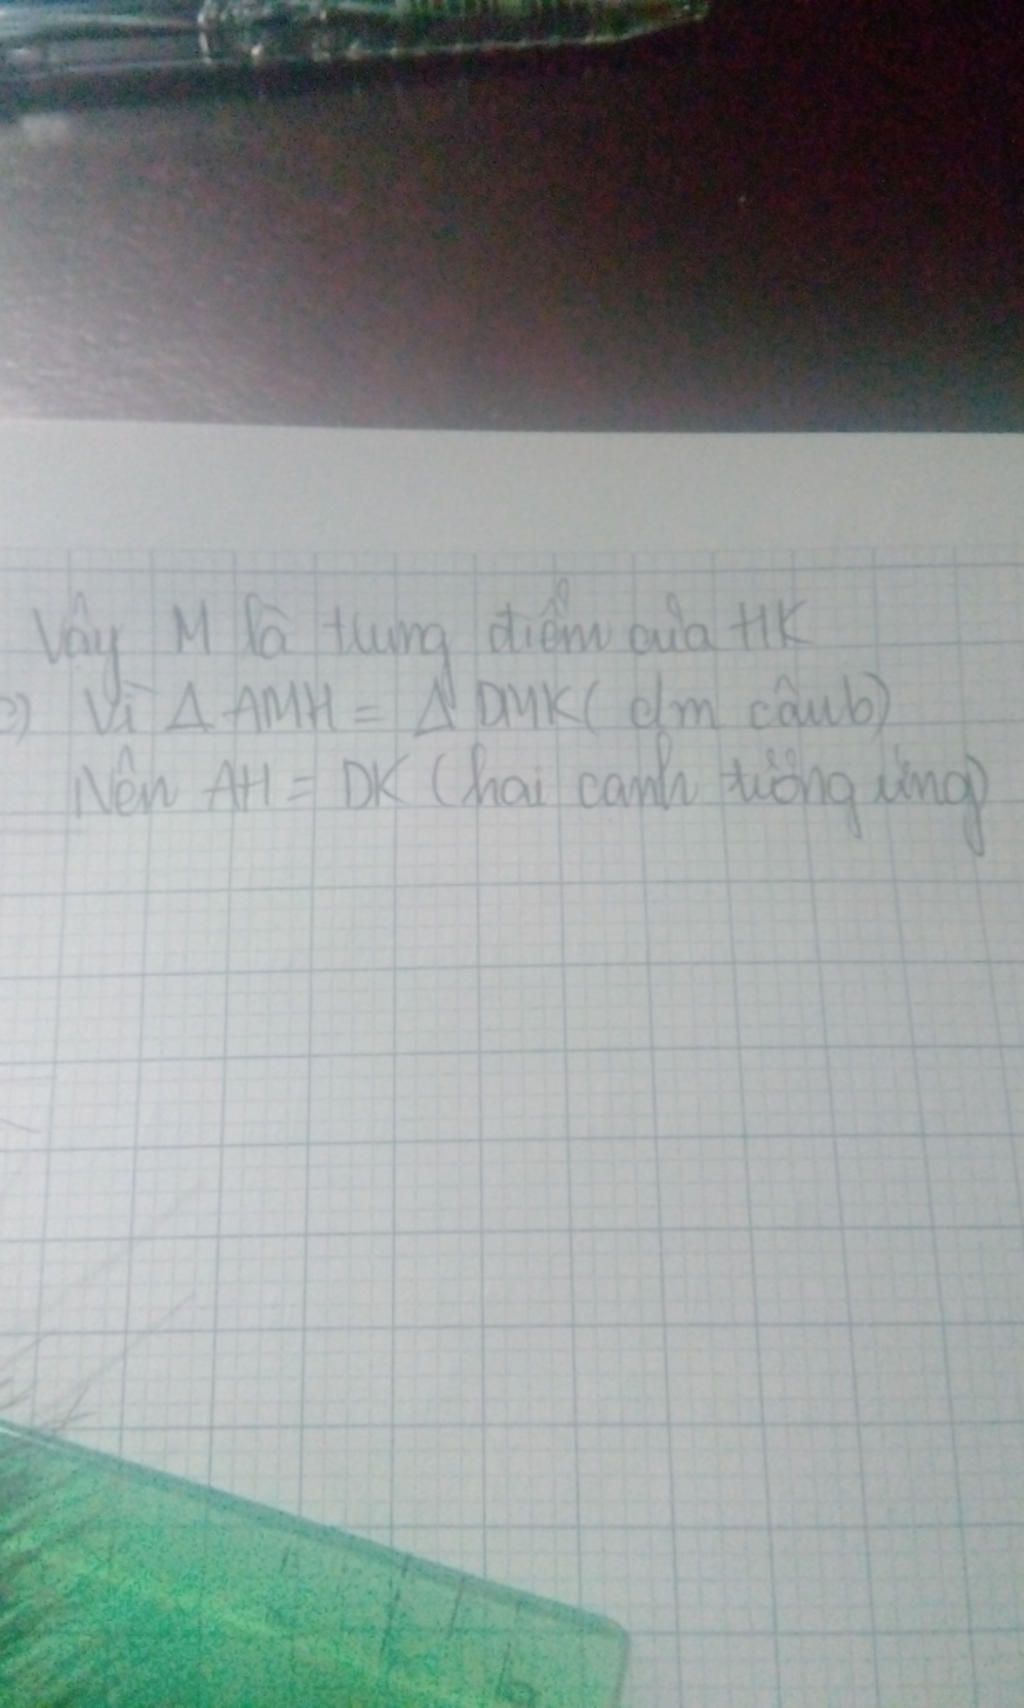 Vậy M là trung điểm của HK
c) Vì Δ AMH = Δ DMK ( c/m câu b)
Nên AH = DK (hai cạnh tương ứng)